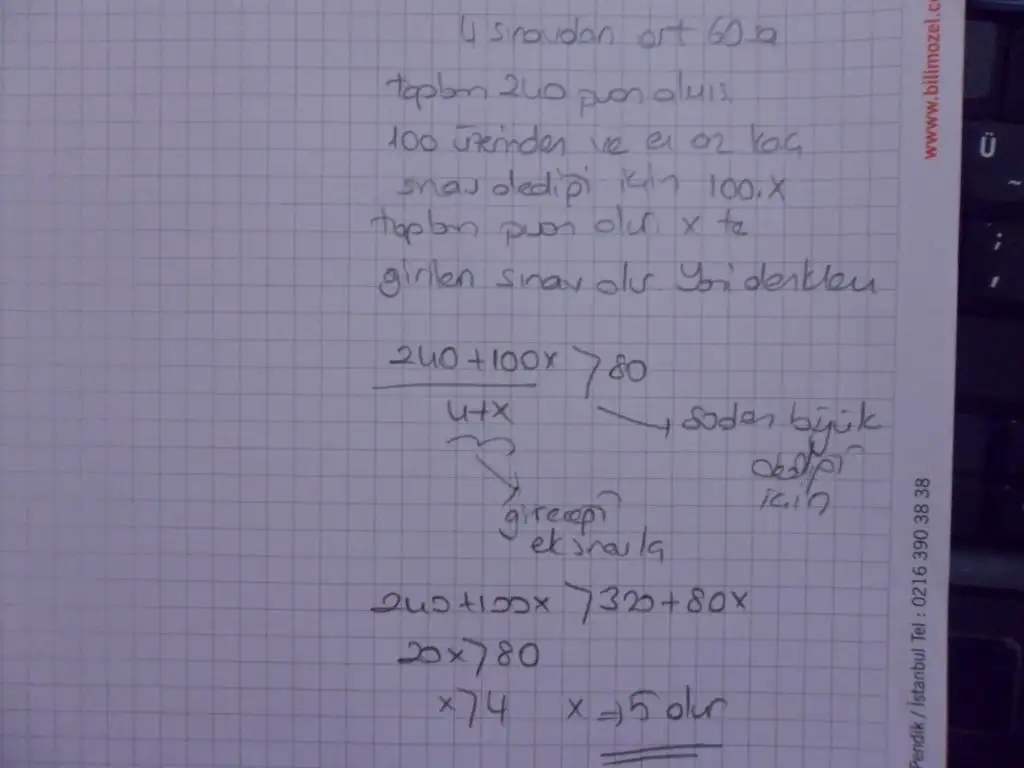 4 sınavdan ort 60 sa
toplam 240 puan olur.
100 üzerinden ve en az kaç
sınav dediği için 100.x
toplam puan olur. x te
girilen sınav olur Yani denklem
240+100x > 80
4+x
80den büyük
dediği
için
gireceği
ek sınavla
240+100x > 320+80x
20x > 80
x > 4 x ⇒ 5 olur
www.bilimozel.c
Pendik / İstanbul Tel : 0216 390 38 38
Ü
~
;
,